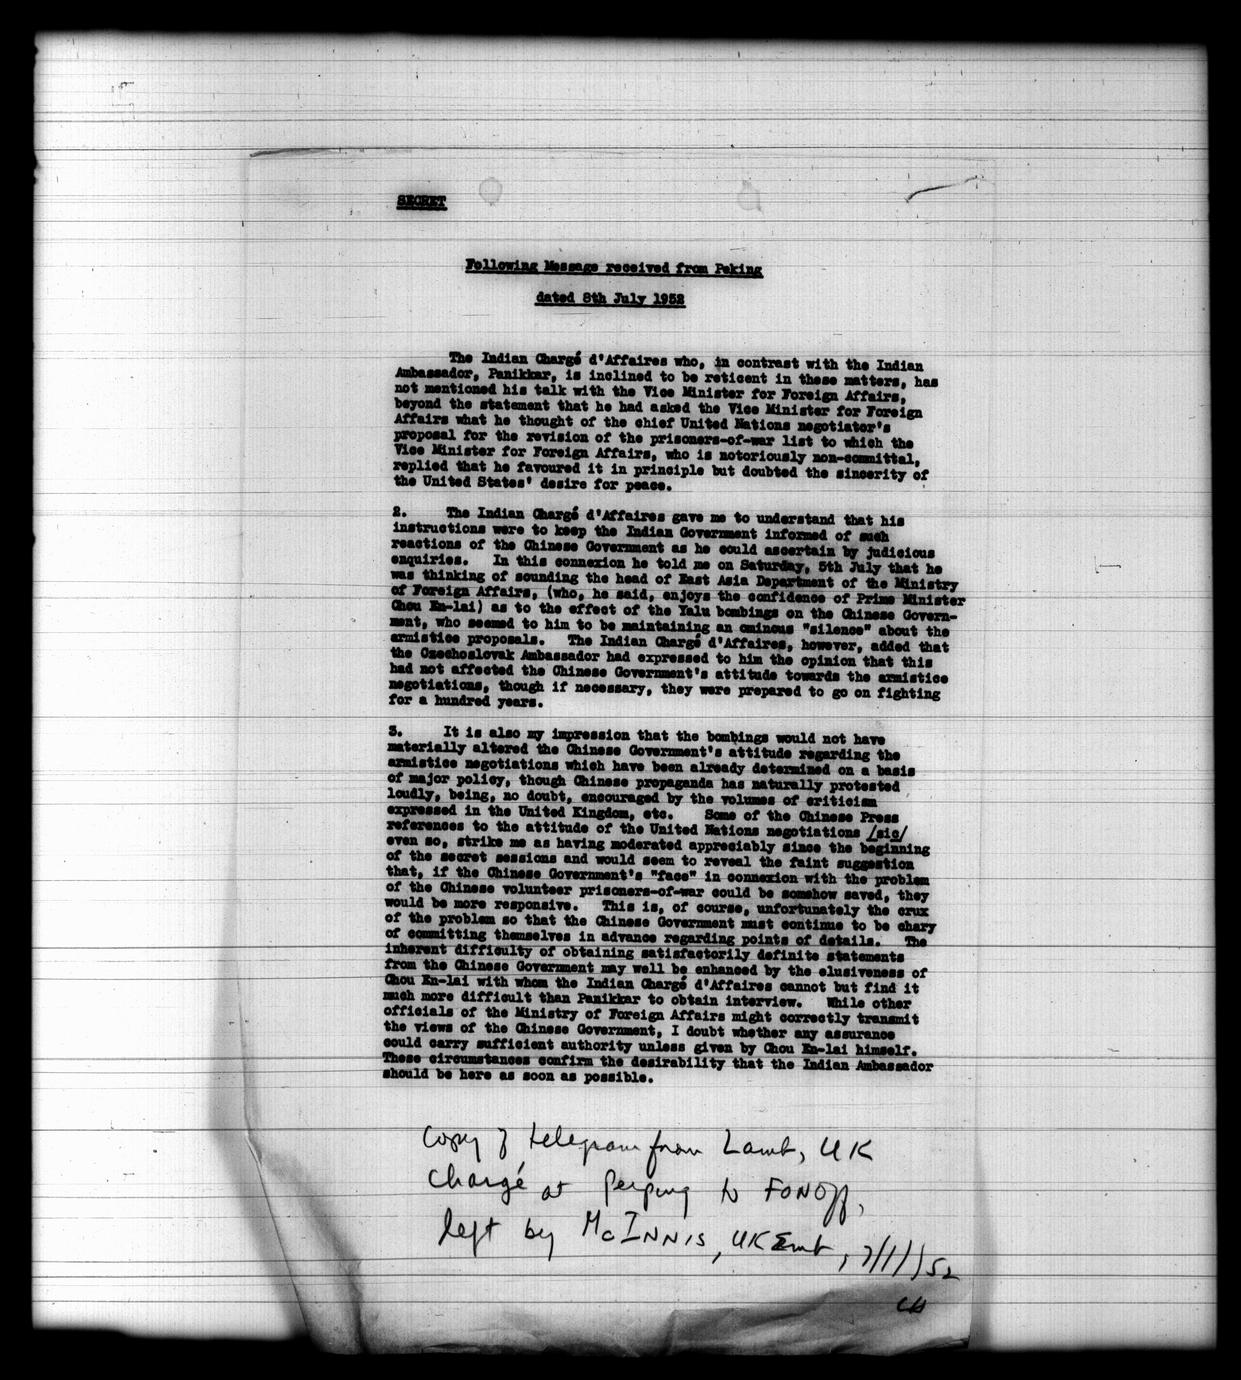 SECRET
Following Message received from Peking
dated 8th July 1952
The Indian Chargé d'Affaires who, in contrast with the Indian
Ambassador, Panikkar, is inclined to be reticent in these matters, has
not mentioned his talk with the Vice Minister for Foreign Affairs,
beyond the statement that he had asked the Vice Minister for Foreign
Affairs what he thought of the chief United Nations negotiator's
proposal for the revision of the prisoners-of-war list to which the
Vice Minister for Foreign Affairs, who is notoriously non-committal,
replied that he favoured it in principle but doubted the sincerity of
the United States' desire for peace.
2. The Indian Chargé d'Affaires gave me to understand that his
instructions were to keep the Indian Government informed of such
reactions of the Chinese Government as he could ascertain by judicious
enquiries. In this connexion he told me on Saturday, 5th July that he
was thinking of sounding the head of East Asia Department of the Ministry
of Foreign Affairs, (who, he said, enjoys the confidence of Prime Minister
Chou En-lai) as to the effect of the Yalu bombings on the Chinese Govern-
ment, who seemed to him to be maintaining an ominous "silence" about the
armistice proposals. The Indian Chargé d'Affaires, however, added that
the Czechoslovak Ambassador had expressed to him the opinion that this
had not affected the Chinese Government's attitude towards the armistice
negotiations, though if necessary, they were prepared to go on fighting
for a hundred years.
3. It is also my impression that the bombings would not have
materially altered the Chinese Government's attitude regarding the
armistice negotiations which have been already determined on a basis
of major policy, though Chinese propaganda has naturally protested
loudly, being, no doubt, encouraged by the volumes of criticism
expressed in the United Kingdom, etc. Some of the Chinese Press
references to the attitude of the United Nations negotiations /sic/
even so, strike me as having moderated appreciably since the beginning
of the secret sessions and would seem to reveal the faint suggestion
that, if the Chinese Government's "face" in connexion with the problem
of the Chinese volunteer prisoners-of-war could be somehow saved, they
would be more responsive. This is, of course, unfortunately the crux
of the problem so that the Chinese Government must continue to be chary
of committing themselves in advance regarding points of details. The
inherent difficulty of obtaining satisfactorily definite statements
from the Chinese Government may well be enhanced by the elusiveness of
Chou En-lai with whom the Indian Chargé d'Affaires cannot but find it
much more difficult than Panikkar to obtain interview. While other
officials of the Ministry of Foreign Affairs might correctly transmit
the views of the Chinese Government, I doubt whether any assurance
could carry sufficient authority unless given by Chou En-lai himself.
These circumstances confirm the desirability that the Indian Ambassador
should be here as soon as possible.
Copy of telegram from Lamb, UK
Chargé at Peiping to FONOff,
left by McINNIS, UKEmb,